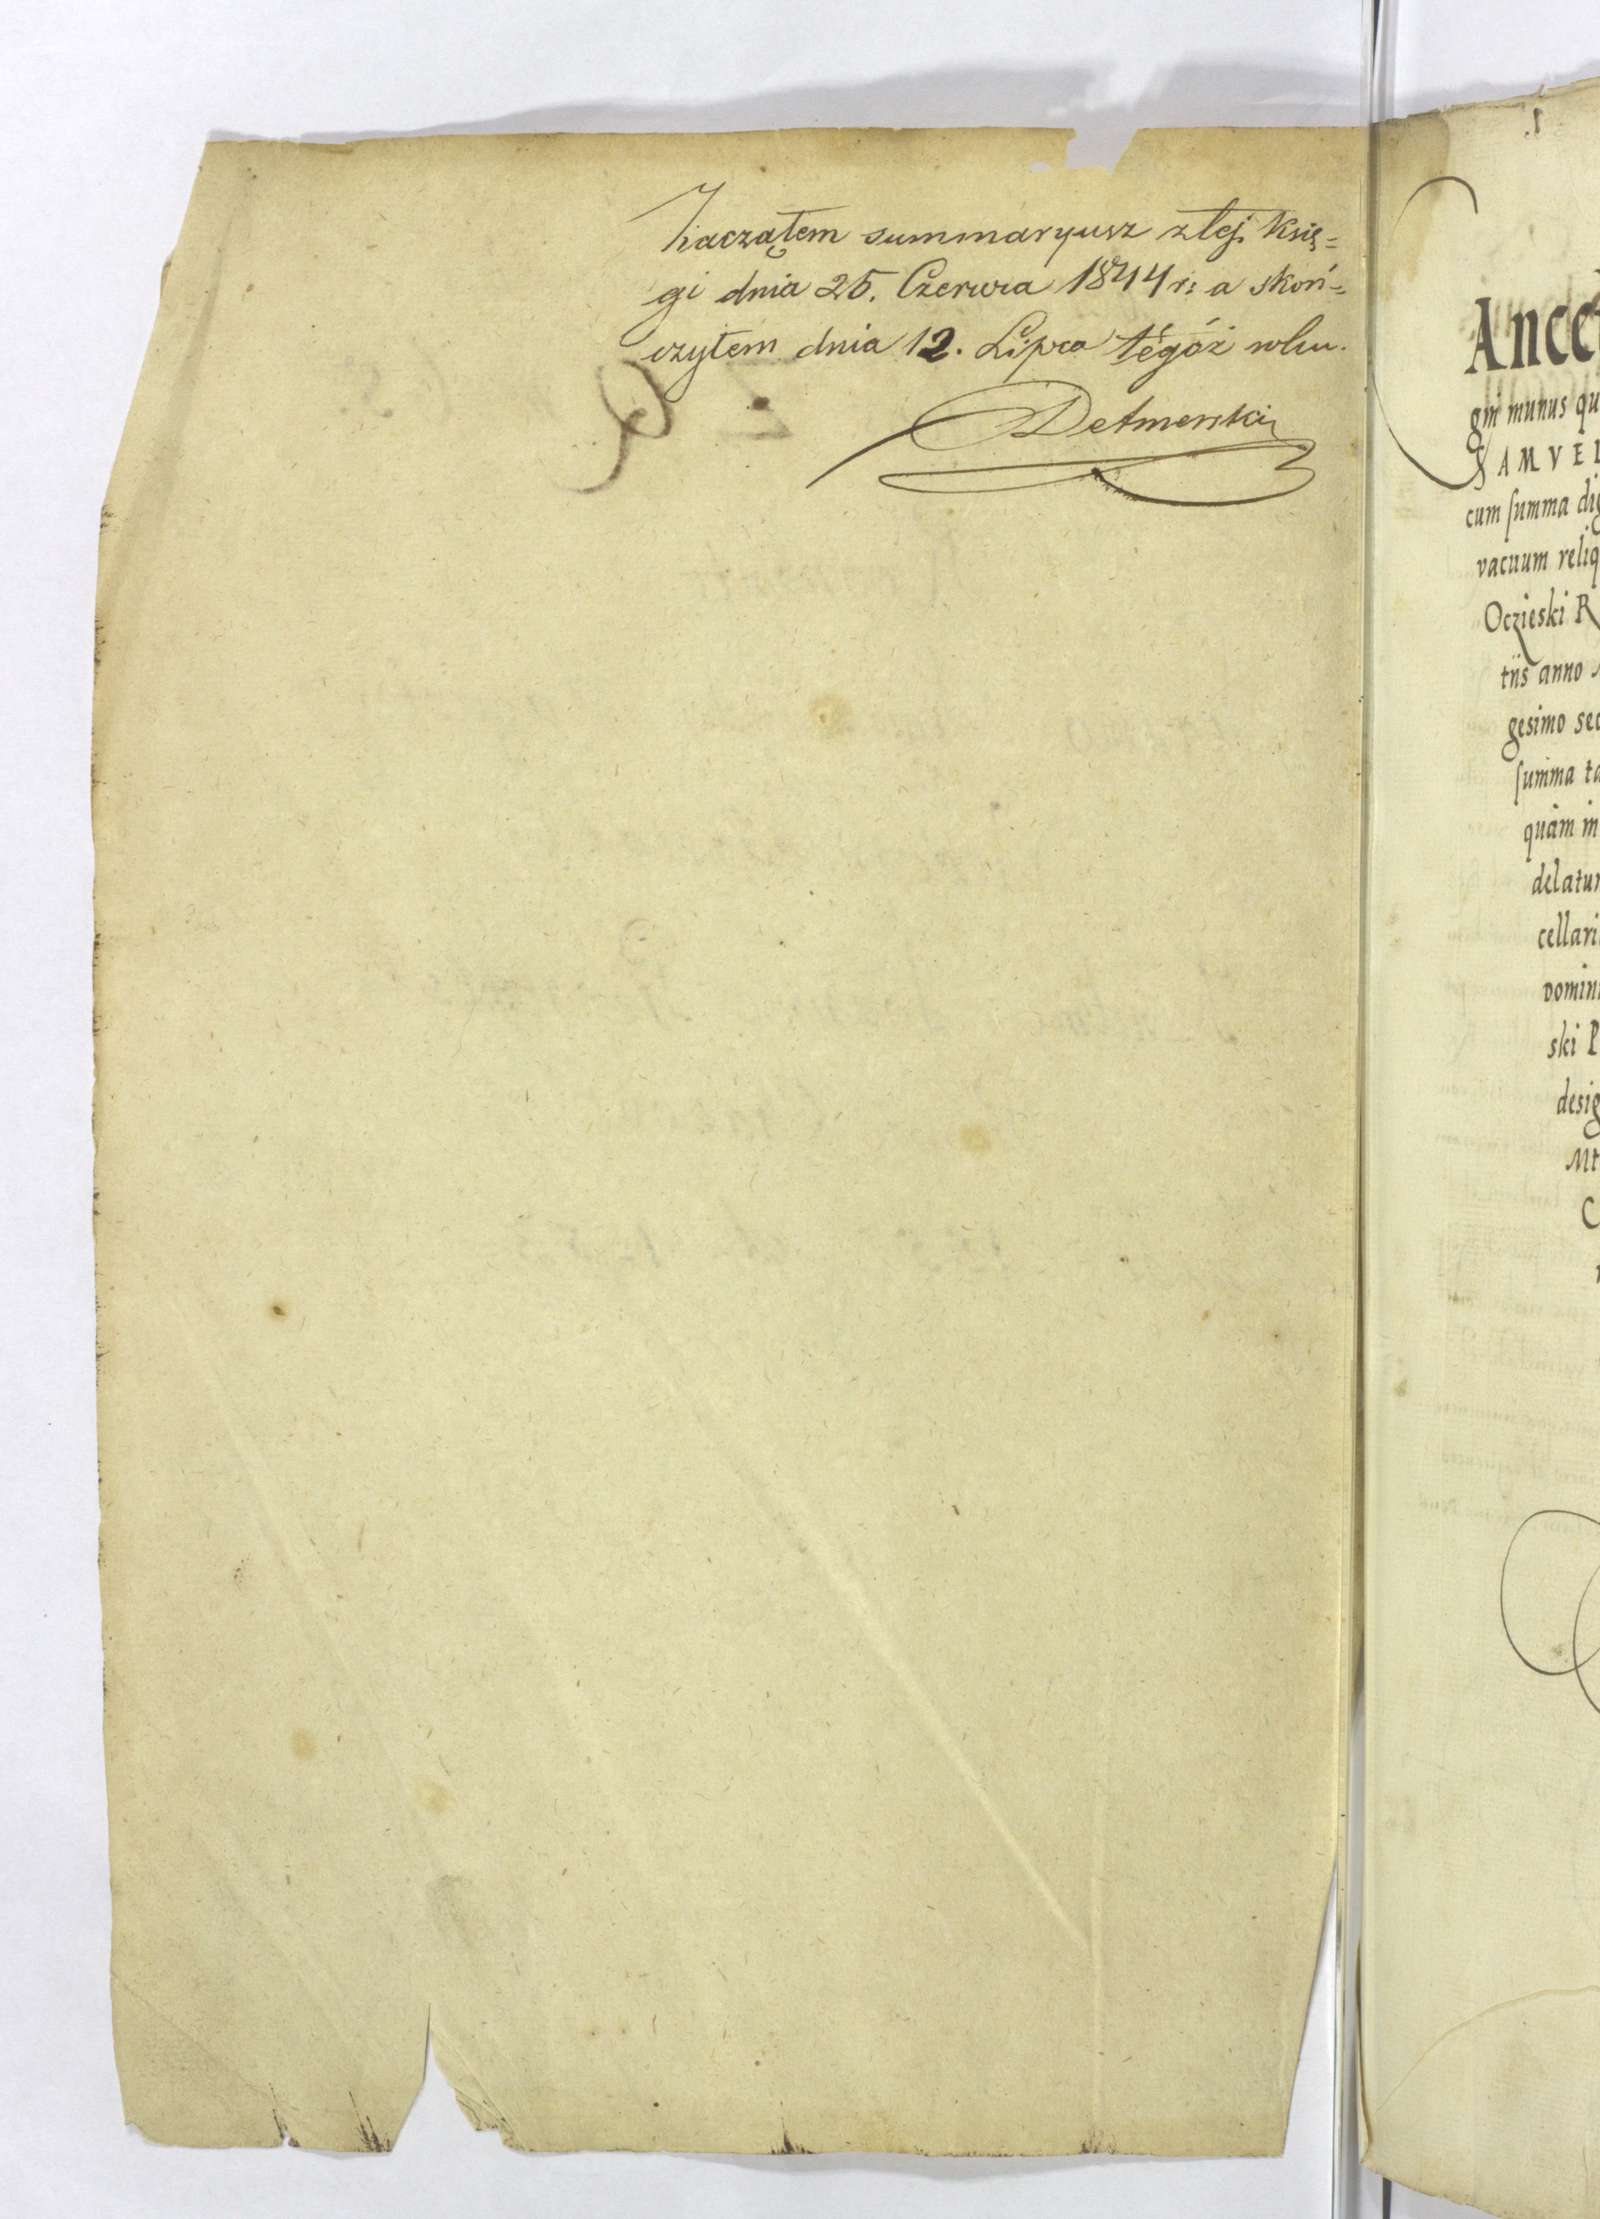 Zacząłem summaryusz z tej Księ=
gi dnia 25. Czerwca 1844 r: a skoń=
czyłem dnia 12. Lipca tegóż roku.
Detmerski
1.
Ancel
gni munus qu
SAMVEL
cum summa dig
vacuum reliq
Oczieski R
tiis anno
gesimo sec
summa ta
quàm in
delatur
cellari
domini
ski P
desig
Mt
C